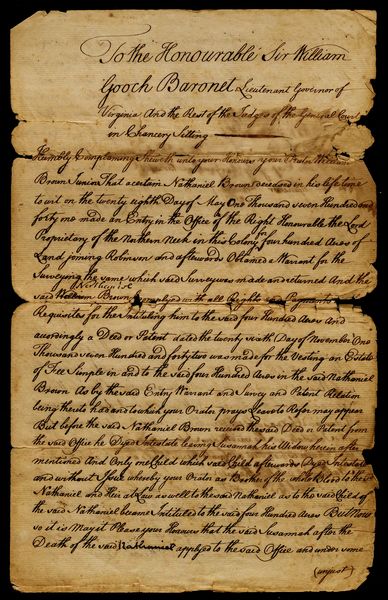 To the Honourable Sir William
Gooch Baronet Lieutenant Governor of
Virginia And the Rest of the Judges of the General Court
in Chancery Sitting
Humbly Complaining Sheweth unto your Honours your Orator William
Brown Junior That a certain Nathaniel Brown deceased in his life time
to wit on the twenty eighth Day of May One Thousand seven hundred and
forty one made an Entry in the Office of the Right Honourable the Lord
Proprietor of the Northern Neck in this Colony for four hundred Acres of
Land joining Robinson and afterwards Obtained Warrant for the
Surveying the same which said Survey was made and returned And the
Nathaniel
said William Brown complyed with all Rights and Payments
Requisites for the Intituling him to the said four Hundred Acres And
accordingly a Deed or Patent dated the twenty sixth Day of November One
Thousand seven Hundred and forty two was made for the Vesting an Estate
of Fee Simple in and to the said four Hundred Acres in the said Nathaniel
Brown As by the said Entry Warrant and Survey and Patent Relation
being thereto had and to which your Orator prays Leave to Refer may appear
But before the said Nathaniel Brown received the said Deed or Patent from
the said Office he Dyed Intestate leaving Susannah his Widow herein after
mentioned And Only one Child which said Child afterwards Dyed Intestate
and without Issue whereby your Orator as Brother of the whole Blood to the sd
Nathaniel and Heir at Law as well to the said Nathaniel as to the said Child of
the said Nathaniel became Intitled to the said four Hundred Acres But Now
so it is May it Please your Honours that the said Susannah after the
Death of the said Nathaniel applyed to the said Office and under some
(unjust)